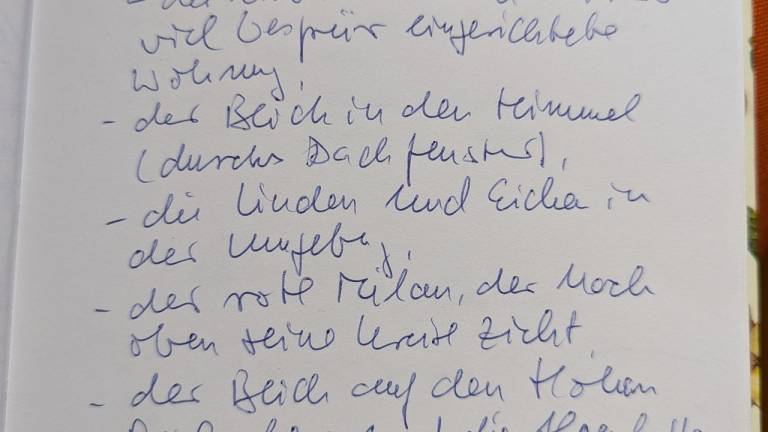 viel Gespür eingerichtete
Wohnung,
- der Blick in den Himmel
(durchs Dachfenster),
- die Linden und Eiche in
der Umgebung,
- der rote Milan, der hoch
oben seine Kreise zieht,
- der Blick auf den Hohen